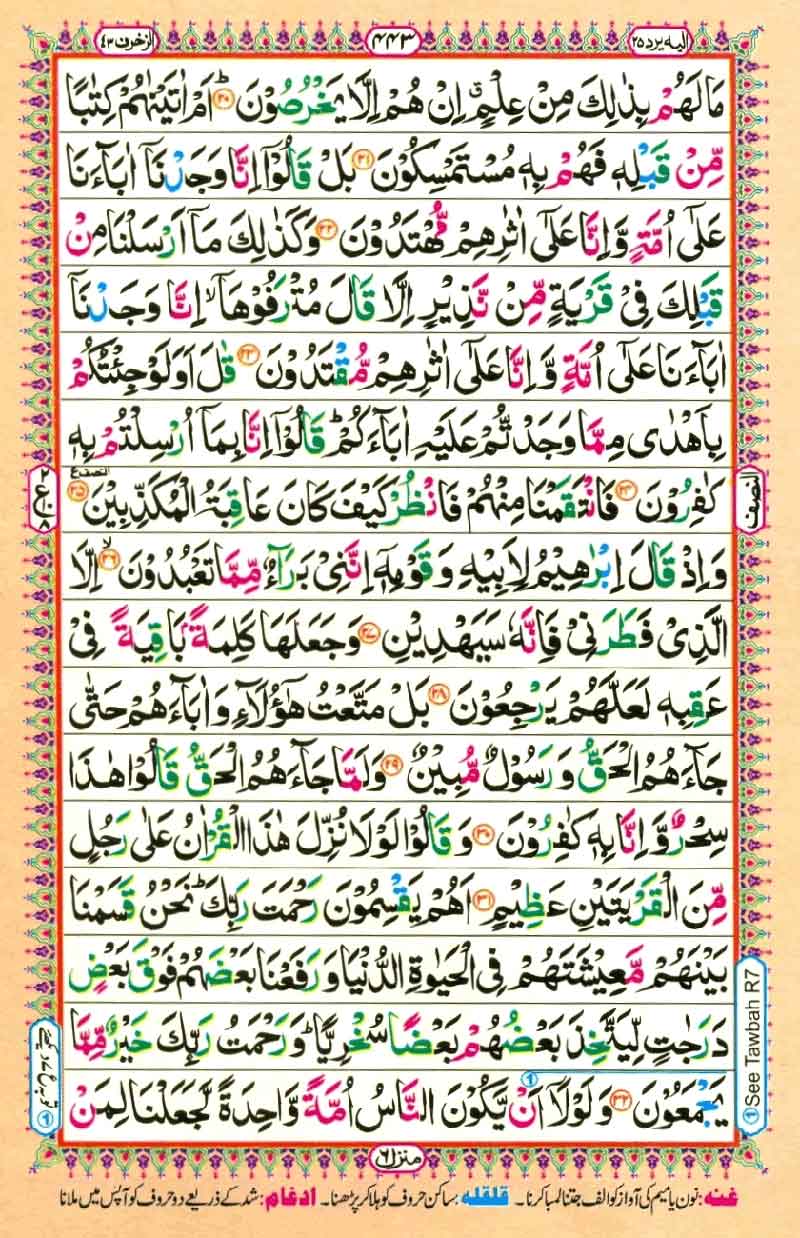 اليه يرد ٢٥
٤٤٣
الزخرف ٤٣
مَا لَهُمْ بِذٰلِكَ مِنْ عِلْمٍ ۗ اِنْ هُمْ اِلَّا يَخْرُصُوْنَ ۟ؕ ٢٠ اَمْ اٰتَيْنٰهُمْ كِتٰبًا
مِّنْ قَبْلِهٖ فَهُمْ بِهٖ مُسْتَمْسِكُوْنَ ٢١ بَلْ قَالُوْۤا اِنَّا وَجَدْنَاۤ اٰبَآءَنَا
عَلٰۤى اُمَّةٍ وَّاِنَّا عَلٰۤى اٰثٰرِهِمْ مُّهْتَدُوْنَ ٢٢ وَكَذٰلِكَ مَاۤ اَرْسَلْنَا مِنْ
قَبْلِكَ فِيْ قَرْيَةٍ مِّنْ نَّذِيْرٍ اِلَّا قَالَ مُتْرَفُوْهَاۤ ۙ اِنَّا وَجَدْنَاۤ
اٰبَآءَنَا عَلٰۤى اُمَّةٍ وَّاِنَّا عَلٰۤى اٰثٰرِهِمْ مُّقْتَدُوْنَ ٢٣ قٰلَ اَوَلَوْ جِئْتُكُمْ
بِاَهْدٰى مِمَّا وَجَدْتُّمْ عَلَيْهِ اٰبَآءَكُمْ ؕ قَالُوْۤا اِنَّا بِمَاۤ اُرْسِلْتُمْ بِهٖ
كٰفِرُوْنَ ٢٤ فَانْتَقَمْنَا مِنْهُمْ فَانْظُرْ كَيْفَ كَانَ عَاقِبَةُ الْمُكَذِّبِيْنَ ٢٥
النصف
وَاِذْ قَالَ اِبْرٰهِيْمُ لِاَبِيْهِ وَقَوْمِهٖۤ اِنَّنِيْ بَرَآءٌ مِّمَّا تَعْبُدُوْنَ ۙ ٢٦ اِلَّا
الَّذِيْ فَطَرَنِيْ فَاِنَّهٗ سَيَهْدِيْنِ ٢٧ وَجَعَلَهَا كَلِمَةًۢ بَاقِيَةً فِيْ
عَقِبِهٖ لَعَلَّهُمْ يَرْجِعُوْنَ ٢٨ بَلْ مَتَّعْتُ هٰۤؤُلَآءِ وَاٰبَآءَهُمْ حَتّٰى
جَآءَهُمُ الْحَقُّ وَرَسُوْلٌ مُّبِيْنٌ ٢٩ وَلَمَّا جَآءَهُمُ الْحَقُّ قَالُوْا هٰذَا
سِحْرٌ وَّاِنَّا بِهٖ كٰفِرُوْنَ ٣٠ وَقَالُوْا لَوْلَا نُزِّلَ هٰذَا الْقُرْاٰنُ عَلٰى رَجُلٍ
مِّنَ الْقَرْيَتَيْنِ عَظِيْمٍ ٣١ اَهُمْ يَقْسِمُوْنَ رَحْمَتَ رَبِّكَ ؕ نَحْنُ قَسَمْنَا
بَيْنَهُمْ مَّعِيْشَتَهُمْ فِي الْحَيٰوةِ الدُّنْيَا وَرَفَعْنَا بَعْضَهُمْ فَوْقَ بَعْضٍ
دَرَجٰتٍ لِّيَتَّخِذَ بَعْضُهُمْ بَعْضًا سُخْرِيًّا ؕ وَرَحْمَتُ رَبِّكَ خَيْرٌ مِّمَّا
يَجْمَعُوْنَ ٣٢ وَلَوْلَاۤ اَنْ يَّكُوْنَ النَّاسُ اُمَّةً وَّاحِدَةً لَّجَعَلْنَا لِمَنْ
See Tawbah R7
منزل ٦
غنه: نون یا میم کی آواز کو الف جتنا لمبا کرنا۔ قلقلہ: ساکن حروف کو ہلا کر پڑھنا۔ ادغام: شد کے ذریعے دو حروف کو آپس میں ملانا